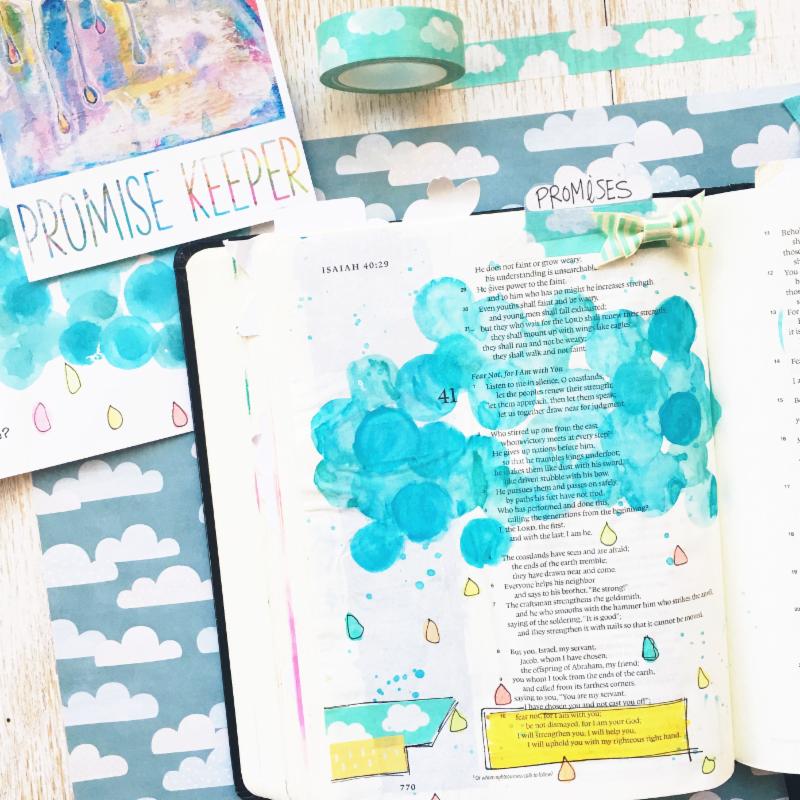 PROMISE KEEPER
PROMiSES
ISAIAH 40:29
He does not faint or grow weary;
his understanding is unsearchable.
29 He gives power to the faint,
and to him who has no might he increases strength.
30 Even youths shall faint and be weary,
and young men shall fall exhausted;
31 but they who wait for the LORD shall renew their strength;
they shall mount up with wings like eagles;
they shall run and not be weary;
they shall walk and not faint.
Fear Not, for I Am with You
41
Listen to me in silence, O coastlands;
let the peoples renew their strength;
let them approach, then let them speak;
let us together draw near for judgment.
Who stirred up one from the east
whom victory meets at every step?
He gives up nations before him,
so that he tramples kings underfoot;
he makes them like dust with his sword,
like driven stubble with his bow.
He pursues them and passes on safely,
by paths his feet have not trod.
4 Who has performed and done this,
calling the generations from the beginning?
I, the LORD, the first,
and with the last; I am he.
5 The coastlands have seen and are afraid;
the ends of the earth tremble;
they have drawn near and come.
6 Everyone helps his neighbor
and says to his brother, "Be strong!"
7 The craftsman strengthens the goldsmith,
and he who smooths with the hammer him who strikes the anvil,
saying of the soldering, "It is good";
and they strengthen it with nails so that it cannot be moved.
8 But you, Israel, my servant,
Jacob, whom I have chosen,
the offspring of Abraham, my friend;
9 you whom I took from the ends of the earth,
and called from its farthest corners,
saying to you, "You are my servant,
I have chosen you and not cast you off";
10 fear not, for I am with you;
be not dismayed, for I am your God;
I will strengthen you, I will help you,
I will uphold you with my righteous right hand.
770
11
12
13 For
14
15
16
17
18
19
20